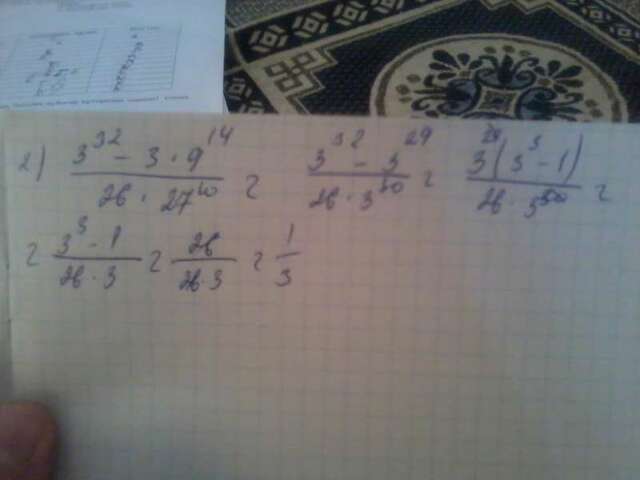 2) \frac{3^{32} - 3 \cdot 9^{14}}{26 \cdot 27^{10}} = \frac{3^{32} - 3^{29}}{26 \cdot 3^{30}} = \frac{3^{29}(3^{3} - 1)}{26 \cdot 3^{30}} =
= \frac{3^{3} - 1}{26 \cdot 3} = \frac{26}{26 \cdot 3} = \frac{1}{3}